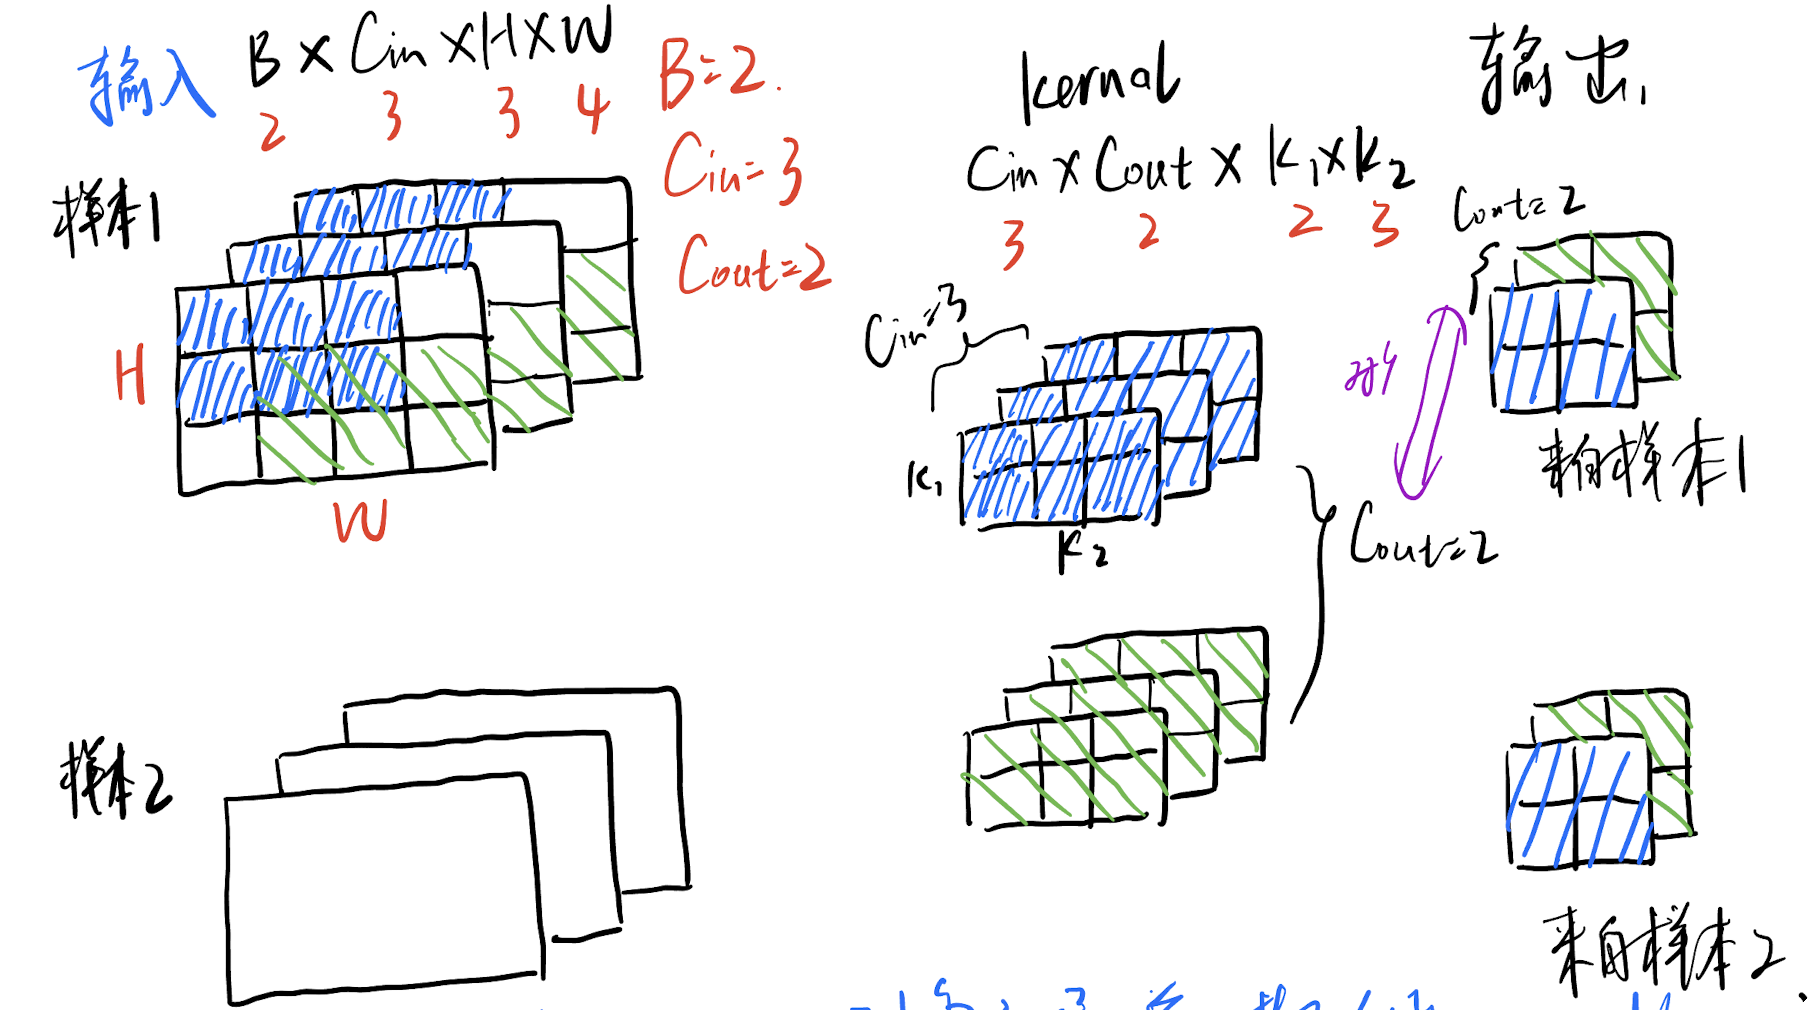 输入 B × Cin × H × W
2 3 3 4
B=2.
Cin=3
Cout=2
样本1
H
W
样本2
kernal
Cin × Cout × K1 × K2
3 2 2 3
Cin=3
K1
K2
Cout=2
输出
Cout=2
来自样本1
来自样本2